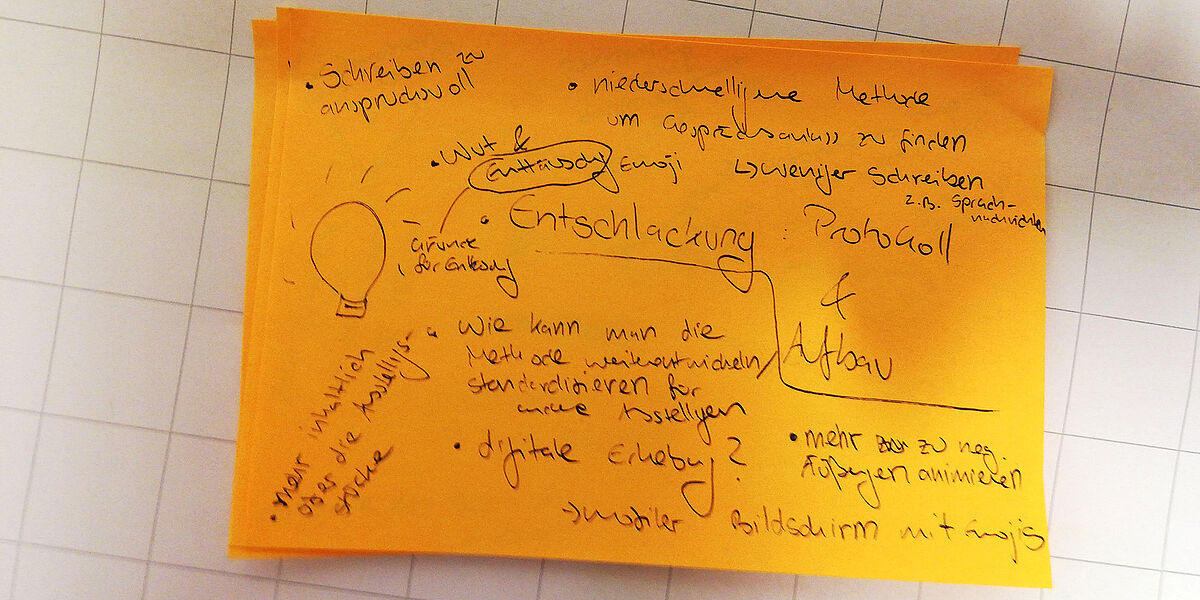 • Schreiben zu
anspruchsvoll
• niederschwelligere Methode
um Gesprächsanlass zu finden
↳ weniger Schreiben
z.B. Sprach-
nachrichten
• Wut &
Enttäuschg Emoji
Gründe
für Enttschg
• Entschlackung: Protokoll
&
Aufbau
• Wie kann man die
Methode weiterentwickeln/
standardisieren für
andere Ausstellgen
• mehr inhaltlich
über die Ausstellgs-
stücke
• digitale Erhebung?
→ mobiler Bildschirm mit Emojis
• mehr zu neg.
Äußergen animieren